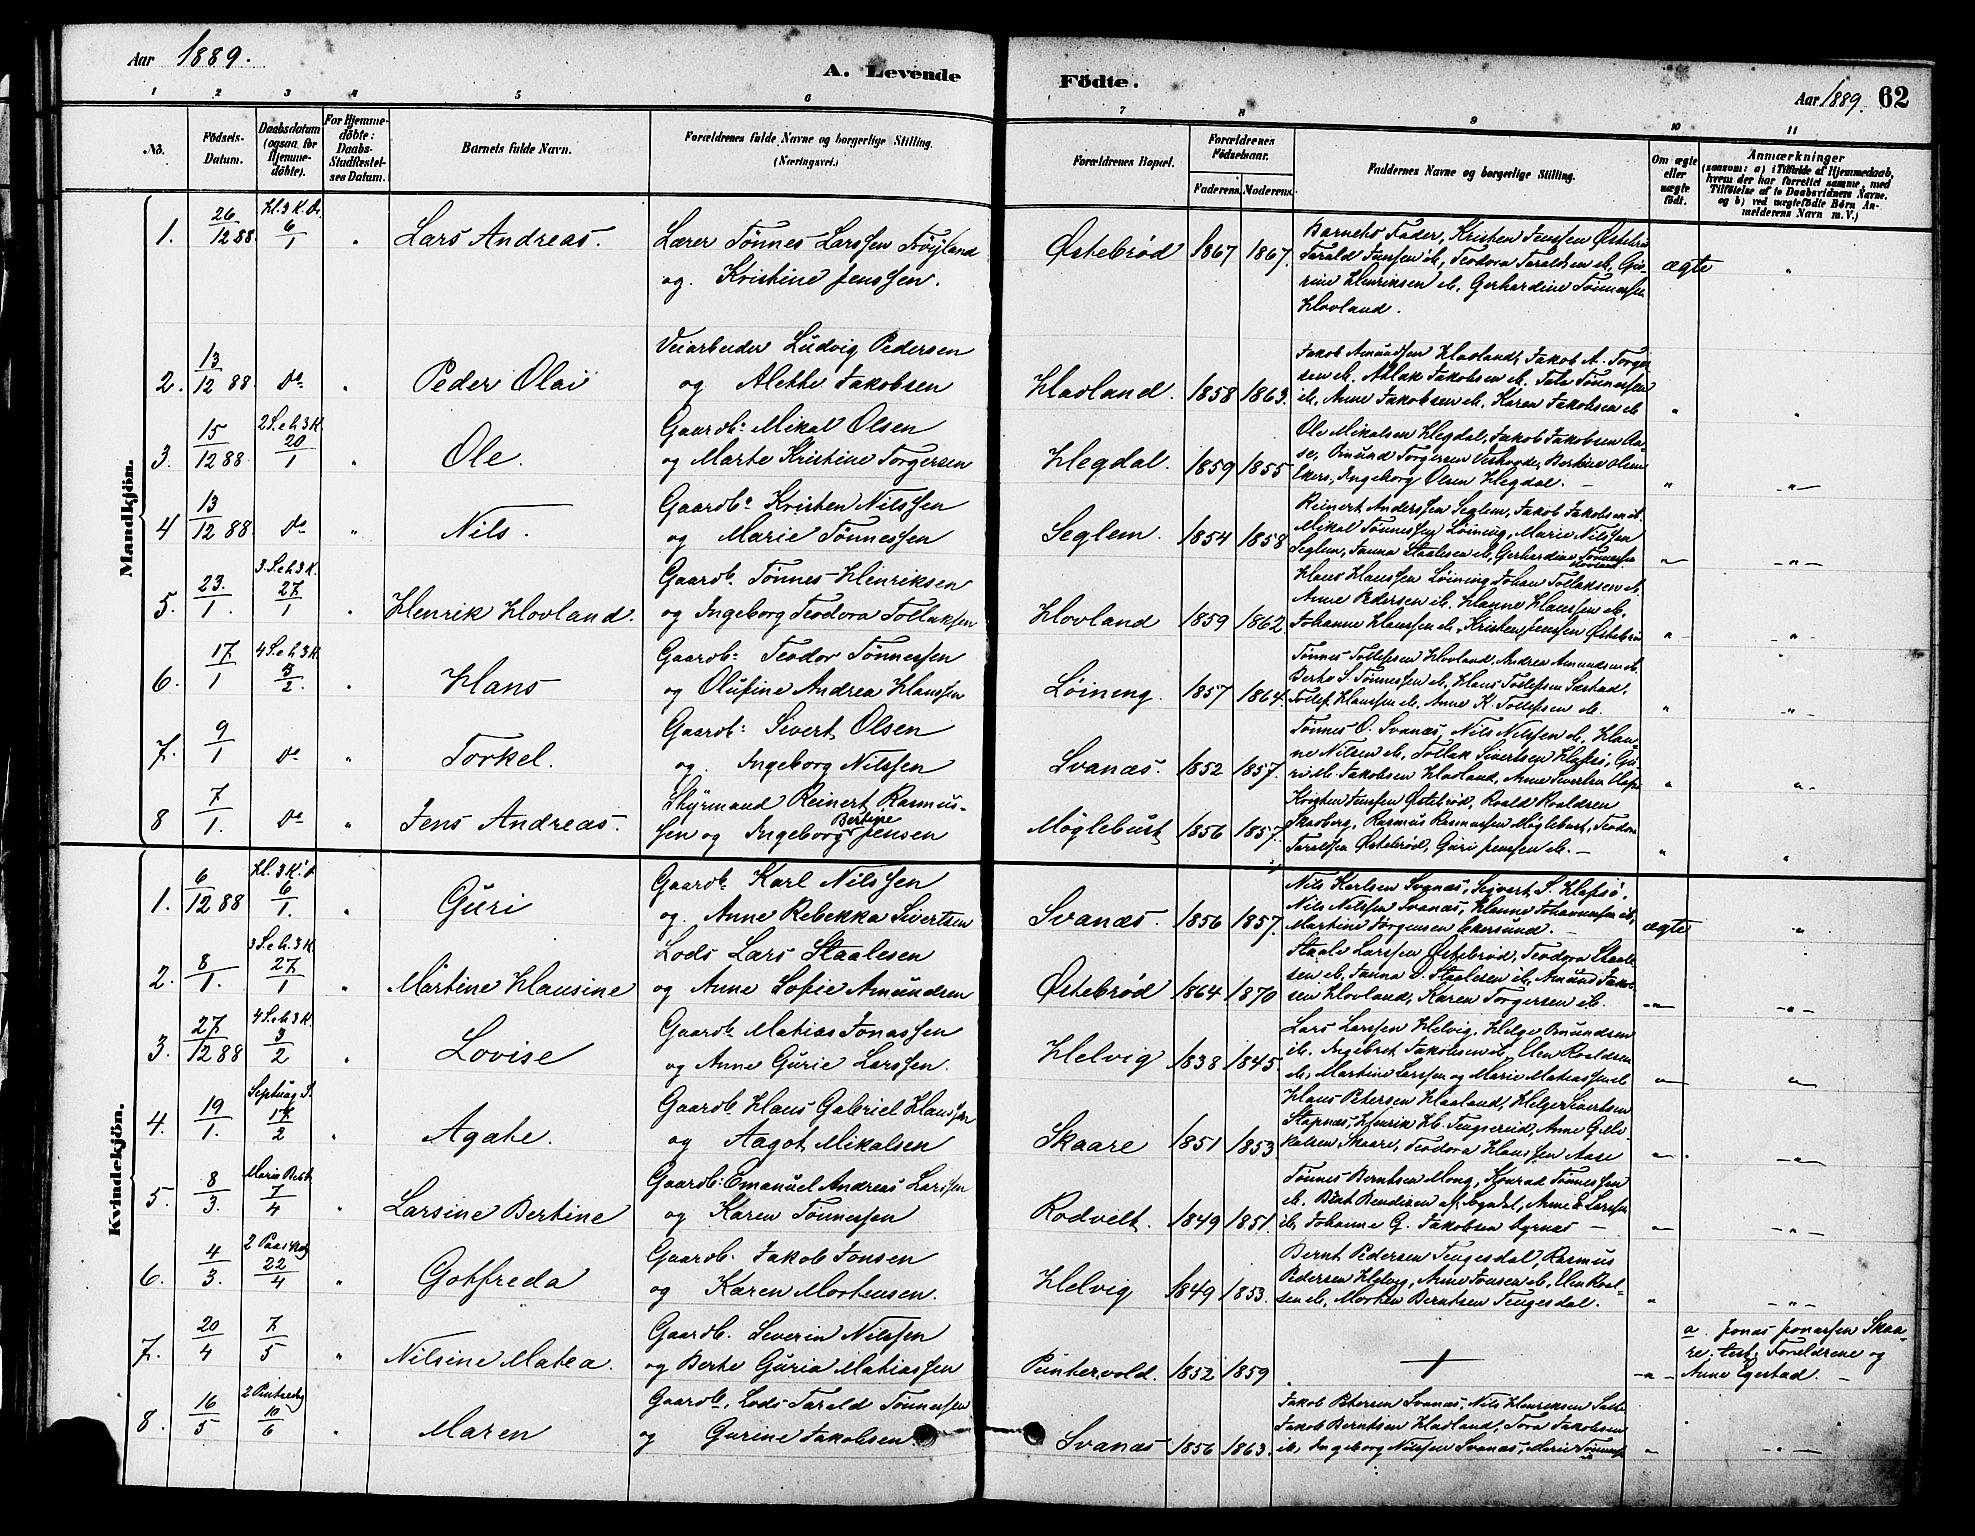 Aar 1889.
A. Levende
Födte.
Aar 1889. 62
1 2 3 4 5 6 7 8 9 10 11
No.
Födsels-
Datum.
Daabsdatum
(ogsaa for
Hjemme-
döbte).
For Hjemme-
döbte:
Daabs-
Stadfæstel-
ses Datum.
Barnets fulde Navn.
Forældrenes fulde Navne og borgerlige Stilling.
(Næringsvei.)
Forældrenes Bopæl.
Forældrenes
Födselsaar.
Faderens. Moderens.
Faddernes Navne og borgerlige Stilling.
Om ægte
eller
uægte
födt.
Anmærkninger
(saasom: a) i Tilfælde af Hjemmedaab,
hvem der har forrettet samme, med
Tilföielse af to Daabsvidners Navne.
og b) ved uægtefödte Børn An-
melderens Navn m. V.)
Mandkjön.
1. 26/12 88. Hl. 3 K. D. 6/1 " Lars Andreas. Lærer Tönnes Larssen Tröyland
og Kristine Jenssen. Østebrød 1867 1867. ægte "
Barnets Fader, Kristen Jenssen Østebrø
Tarald Jenssen ib, Teodora Taraldsen ib, Gu-
rine Henriksen ib, Gerhardine Tönnessen
Hovland.
2. 13/12 88. Do " Peder Olai Veiarbeider Ludvig Pedersen
og Alette Jakobsen Havland. 1858 1863. " "
Jakob Amundsen Havland, Jakob A. Torger-
sen ib. Aslak Jakobsen ib. Tala Tönnessen
ib, Anne Jakobsen ib. Karen Jakobsen ib
3. 15/12 88. 2 S. e h. 3 K. 20/1 " Ole. Gaardb: Mikal Olsen
og Marte Kristine Torgersen Hegdal. 1859 1855 " -"-
Ole Mikalsen Hegdal, Jakob Jakobsen Aa-
se, Omund Torgersen Bertine Olsen
Ekers, Ingeborg Olsen Hegdal. -
4 13/12 88. Do " Nils. Gaardb: Kristen Nilssen
og Marie Tönnessen Seglem. 1854 1858 " -"-
Reinert Anderssen Seglem, Jakob Jakobsen ib.
Mikal Tönnessen Löining, Marie Nilssen
Seglem, Janna Staalesen ib, Gerhardine Tönnessen
Hovland
5. 23./1. 3. S. e h. 3 K. 27/1 " Henrik Hovland. Gaardb. Tönnes Henriksen
og Ingeborg Teodora Tollaksen Hovland 1859 1862. " -"-
Hans Hanssen Löining, Johan Tollaksen ib.
Anne Pedersen ib. Hanne Hanssen ib,
Johanne Hanssen ib, Kristen Jenssen Østebrø
6. 17/1 4 S. e h. 3 K. 3/2. " Hans Gaardb: Teodor Tönnessen
og Olufine Andrea Hanssen Löining. 1857 1864. " -"-
Tönnes Tollefsen Hovland, Andrea Amundsen ib.
Berte S. Tönnessen ib. Hans Tollefsen Sæstad,
Tollef Hanssen ib, Anne K. Tollefsen ib.
7. 9/1 Do " Torkel. Gaardb: Sivert Olsen
og Ingeborg Nilssen Svanæs. 1852 1857. " "
Tönnes O. Svanæs, Nils Nilssen ib. Han-
ne Nilsen ib. Tollak Sivertsen Hafsö, Gu-
ri ib. Jakobsen Havland, Anne Sivertsen Hafsö
8 7/1. Do " Jens Andreas. Styrmand Reinert Rasmus-
sen og Ingeborg Bertine Jensen Möglebust 1856 1857. " "
Kristen Jenssen Østebrød, Roald Roaldsen
Skadberg, Rasmus Rasmussen Möglebust, Teodora
Taralsen Østebrød, Guri Jenssen ib. -
Kvindekjön.
1. 6/12 88 Hl. 3 K. D. 6/1. " Guri Gaardb: Karl Nilssen
og Anne Rebekka Sivertsen Svanæs. 1856 1857. ægte "
Nils Karlsen Svanæs, Seivert S. Hafsö,
Nils Nilssen Svanæs, Hanne Johannessen ib,
Martine Jörgensen Ekersund. -
2. 8/1. 3 S. e h. 3 K. 27/1 " Martine Hansine Lods Lars Staalesen
og Anne Sofie Amundsen Østebrød 1864 1870 -"- -"-
Staale Larssen Østebrød, Teodora Staale-
sen ib, Janna S. Staalesen ib, Amund Jakob-
sen Hovland, Karen Torgersen ib.
3. 27/12 88 4 S. e h. 3 K. 3/2 " Lovise Gaardb. Matias Jonassen
og Anne Gurie Larssen. Helvig 1838 1845. -"- -"-
Lars Larssen Helvig, Helge Omundsen
ib. Ingebret Jakobsen ib. Elen Roaldsen
ib, Martine Larssen og Marie Matiassen ib
4. 19/1. Septuag. S. 17/2 " Agate. Gaardb. Hans Gabriel Hanssen
og Aagot Mikalsen Skaare 1851 1853. -"-. -"-
Hans Petersen Haaland, Helge Sivertsen
Stapnæs, Henrik H. Tengsereid, Anne G. Mi-
kalsen Skaare, Teodora Hanssen Aase
5. 8/3. Maria Beb. 7/4 " Larsine Bertine Gaardb: Emanuel Andreas Larssen
og Karen Tönnessen Rodvelt. 1849 1851. -"- -"-
Tönnes Berntsen Mong, Konrad Tönnessen
ib. Bent Bendixen af Sogndal, Anne E. Larssen
ib, Johanne G. Jakobsen Myrnæs -
6. 4/3. 2 Paaskedg 22/4 " Gotfreda Gaardb. Jakob Jonsen
og Karen Mortensen. Helvig 1849 1853. " -"-
Bernt Pedersen Tengesdal, Rasmus
Pedersen Helvig, Anne Jonsen ib, Elen Roal-
sen ib, Morten Berntsen Tengesdal.
7. 20/4 7/5 " Nilsine Matea. Gaardb. Severin Nilssen
og Berte Guria Matiassen Puntervold. 1852 1859 + -"-
a. Jonas Jonassen Skaa-
re. test: Forældrene og
Anne Egestad. -
8. 16/5 2 Pintsedg 10/6 " Maren Gaardb. Lods Tarald Tönnessen
og Gurine Jakobsen. Svanæs 1856 1863. " -"-
Jakob Petersen Svanæs, Nils Henriksen
Jakob Berntsen Havland, Tora Jakobsen
ib, Ingeborg Nilssen Svanæs, Marie Tönness.